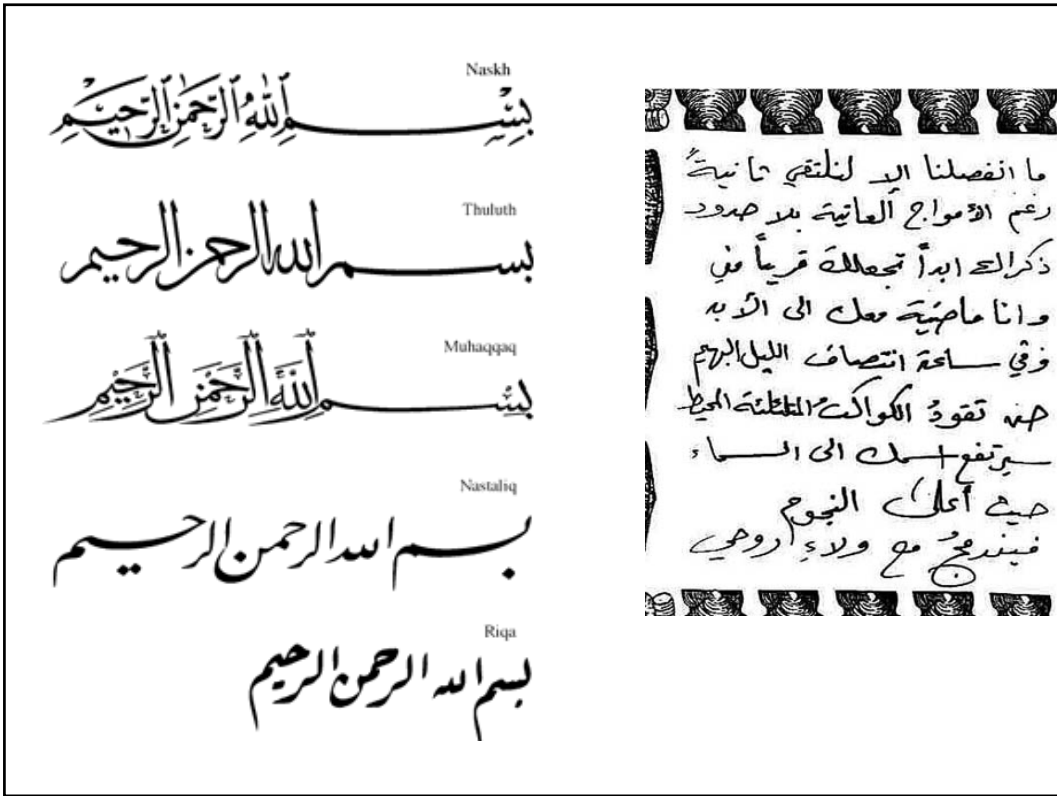 Naskh
بِسْمِ اللّٰهِ الرَّحْمٰنِ الرَّحِيْمِ
Thuluth
بسم الله الرحمن الرحيم
Muhaqqaq
بِسْمِ اللَّهِ الرَّحْمَنِ الرَّحِيْمِ
Nastaliq
بسم الله الرحمن الرحیم
Riqa
بسم الله الرحمن الرحيم
ما انفصلنا إلا لنلتقي ثانيةً
رغم الأمواج العاتية بلا حدود
ذكراك ابداً تجعلك قريباً مني
وانا ماضية معك الى الأبد
وفي ساعة انتصاف الليل البهيم
حين تقودُ الكواكبُ المتلئلئة المحيط
سيرتفع اسمك الى السماء
حيث أعلى النجوم
فيندمجُ مع ولاءِ روحي